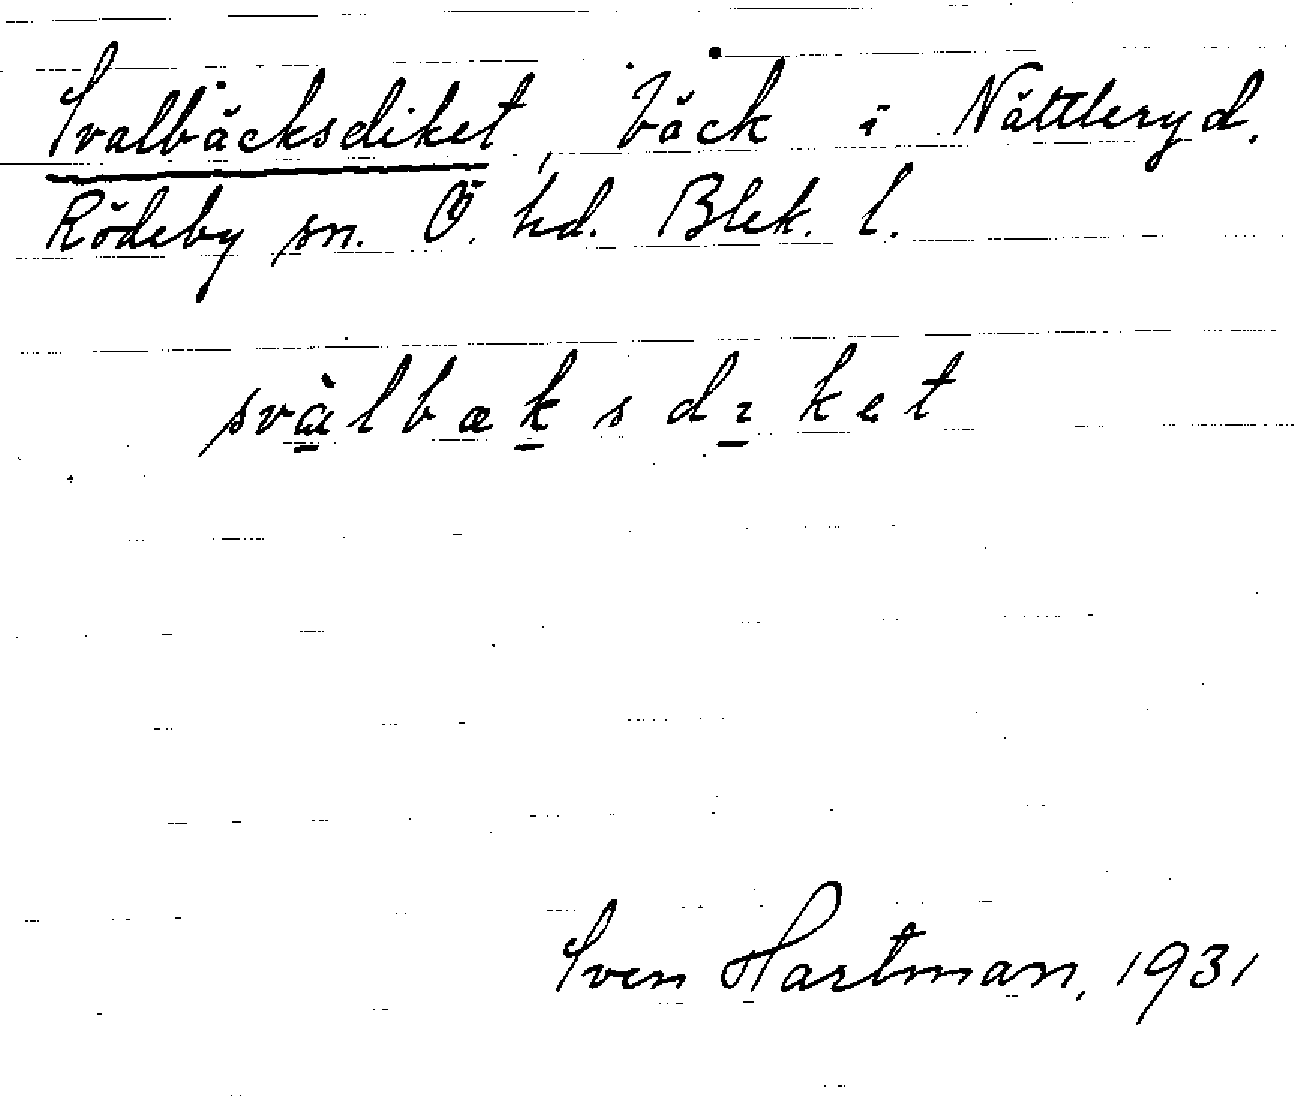 Svalbäcksdiket, bäck i Nättleryd.
Rödeby sn. Ö. hd. Blek. l.
svàlbæksdıket
Sven Hartman, 1931